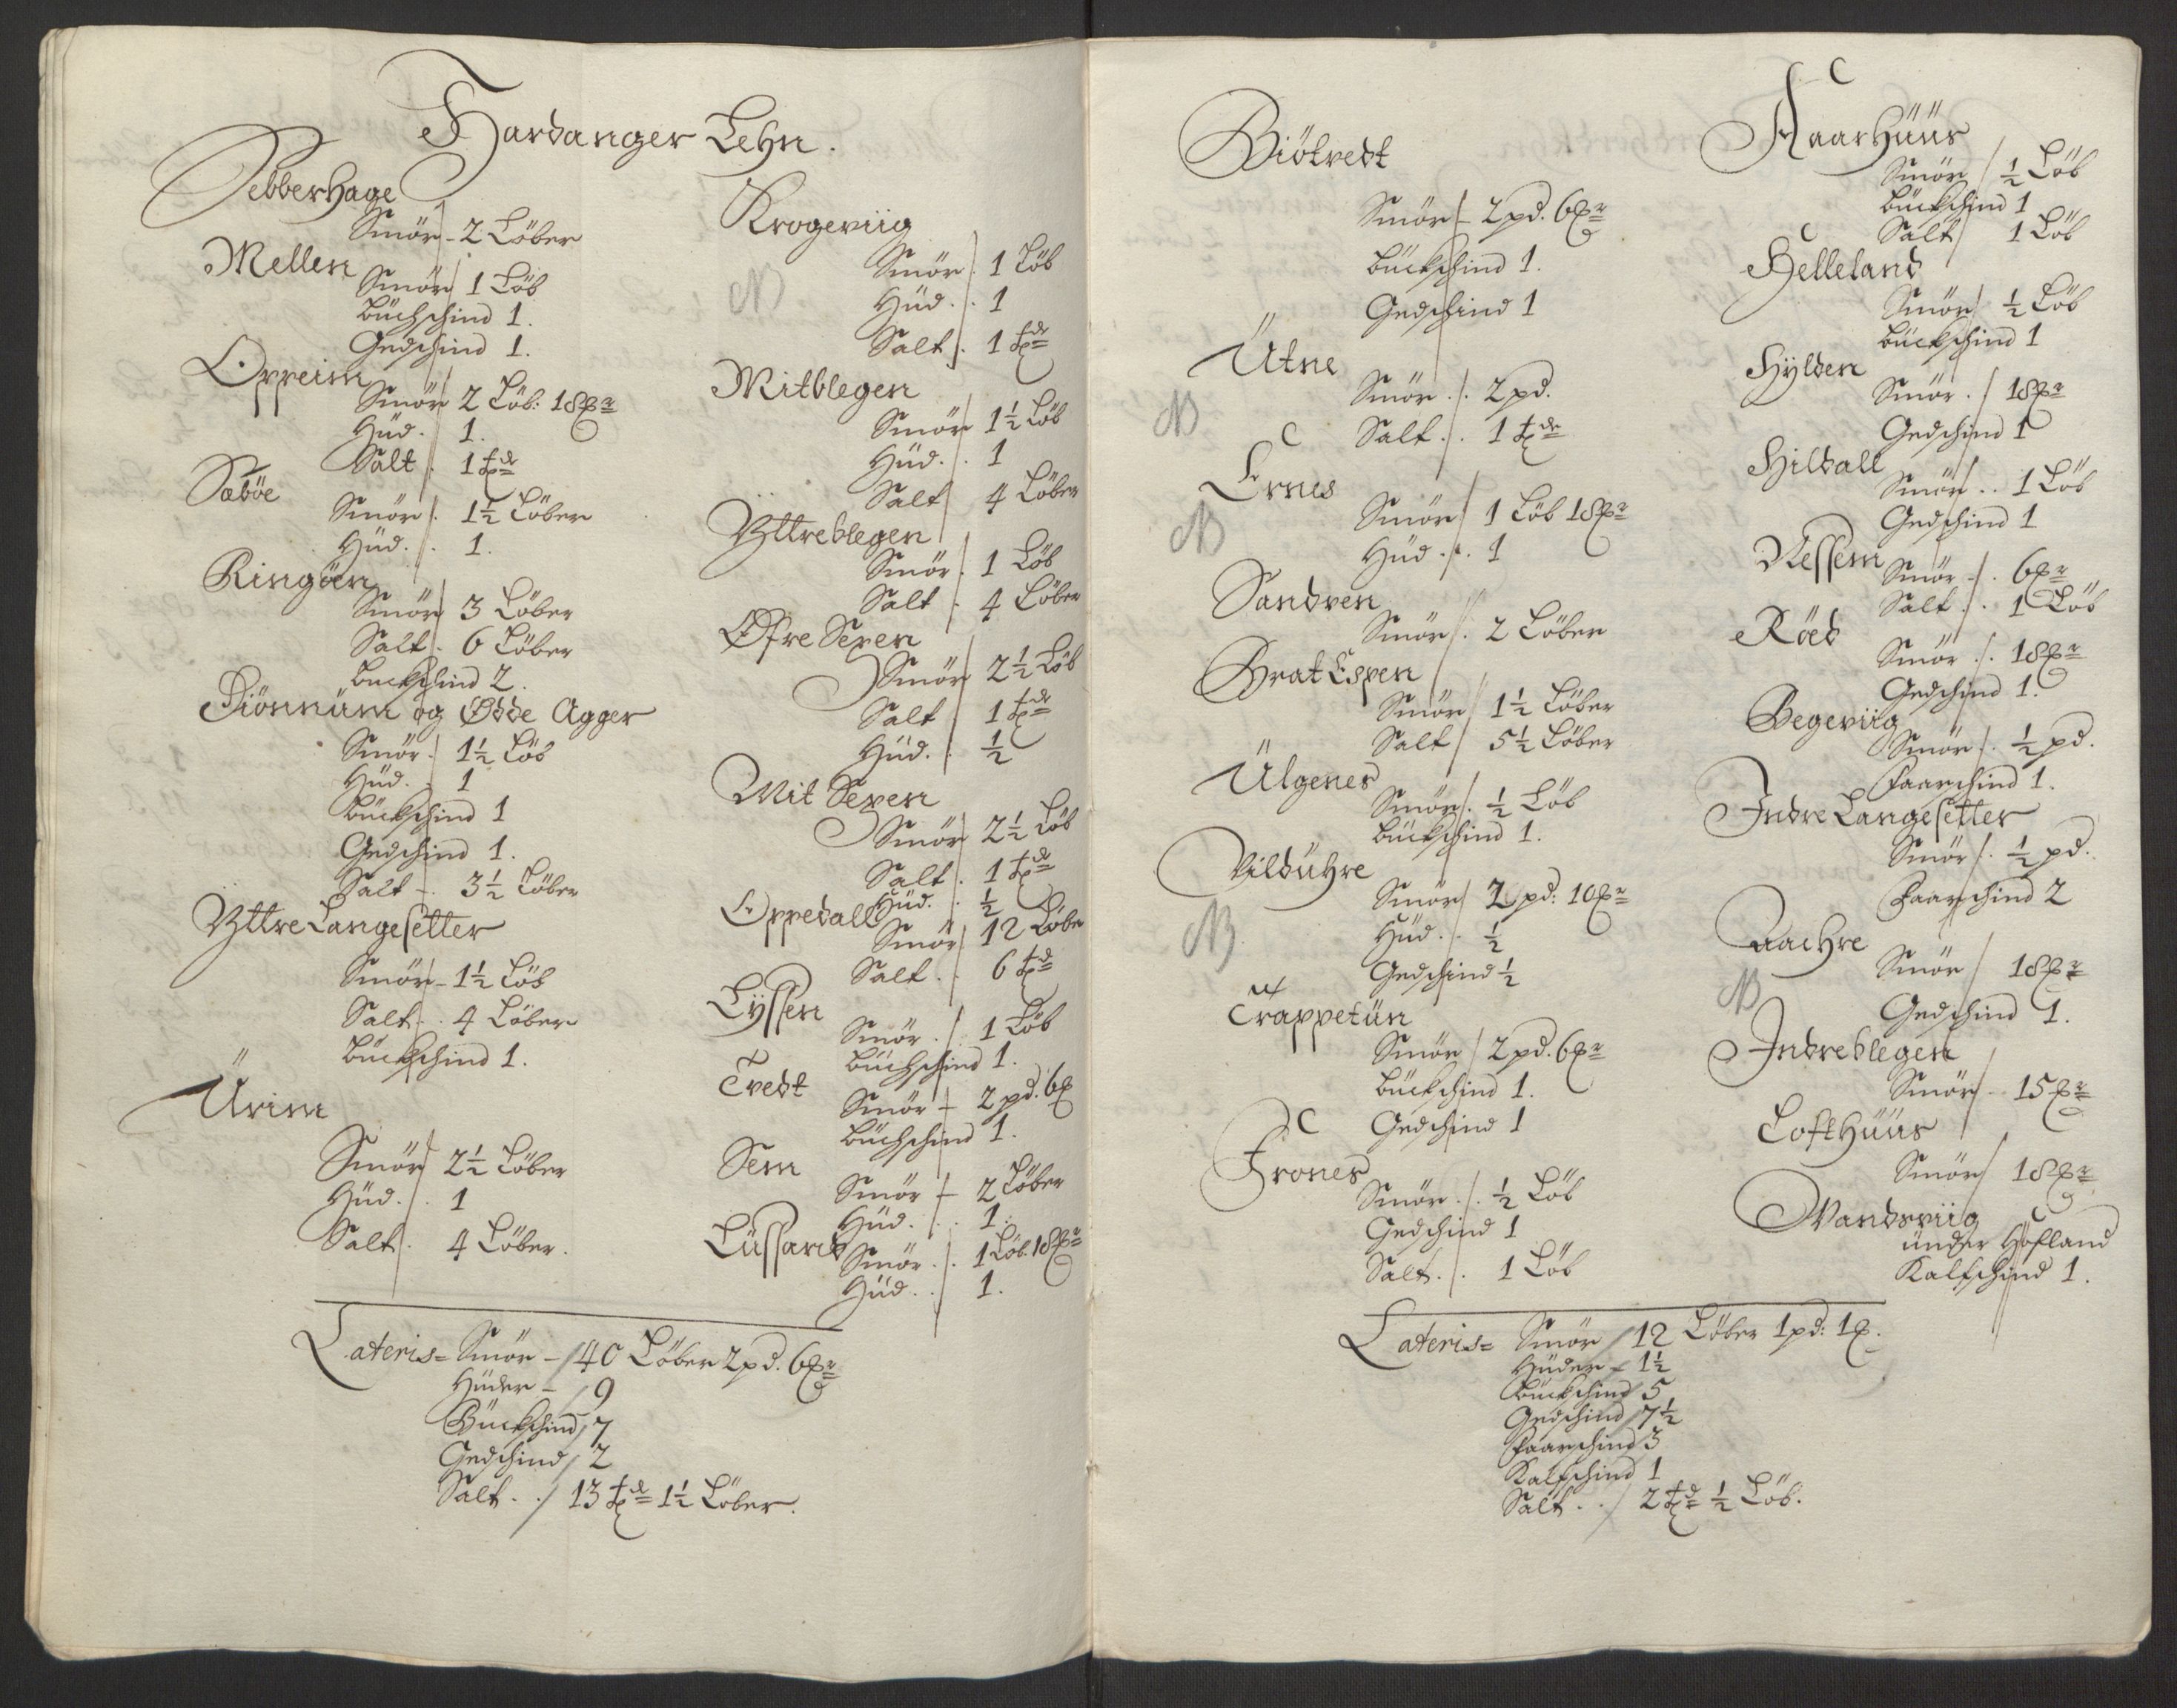 Hardanger Lehn.
Pebberhage
Smör - 2 Löber
Mellen
Smör 1 Löb
Buchschind 1.
Gedschind 1.
Oppeim
Smör 2 Löb: 18 ℔r
Hüd. 1.
Salt . 1 tde
Sæböe
Smör . 1½ Löber
Hüd. . 1.
Ringöen
Smör 3 Löber
Salt . 6 Löber
Buckschind 2.
Diönnüm og Ødde Agger
Smör . 1½ Löb
Hüd. . 1
Bückschind 1
Gedschind 1.
Salt - . 3½ Löber
Yttre Langesetter
Smör - 1½ Löb
Salt . . 4 Löber
Bückschind 1.
Ürim
Smör 2½ Löber
Hüd. . 1
Salt . 4 Löber.
Krogeviig
Smör . 1 Löb
NB Hüd. . 1
Salt . 1 tde
Mitblegen
Smör 1½ Löb
Hüd. . 1
Salt 4 Löber
Yttreblegen
Smör . 1 Löb
Salt . 4 Löber
Øfre Sexen
Smör 2½ Löb
Salt 1 tde
Hüd. . ½
Mit Sexen
Smör 2½ Löb
Salt . 1 tde
Hüd. . ½
Oppedall
Smör 12 Löber
Salt . . 6 td
Lyssen
Smör . . 1 Löb
Büchschind 1.
Tvedt
Smör - 2 pd. 6 ℔
Büchschind 1.
Sem
Smör - 2 Löber
Hüd. . . 1.
Lüssand
Smör . . 1 Löb. 18 ℔r
Hüd. . 1.
Lateris = Smör - 40 Löber 2 pd. 6 ℔r
Hüder - 9
Bückschind 7
Gedschind 2
Salt . . 13 tde 1½ Löber.
Biötvedt
Smör - 2 pd. 6 ℔r
Bückschind 1.
Gedschind 1
Ütne
Smör . . 2 pd.
NB Salt . . 1 tde
Ernes
Smör 1 Löb 18 ℔r
NB Hüd . . 1
Sandven
Smör . 2 Löber
Brat Espen
Smör 1½ Löber
Salt 5½ Löber
Ülgenes
Smör . ½ Löb
Bückschind 1.
Vildühre
Smör 2 pd: 10 ℔r
NB Hüd. . ½
Gedschind ½
Trappetün
Smör 2 pd. 6 ℔r
Bückschind 1.
Gedschind 1
Frones
Smör . . ½ Löb
Gedschind 1
Salt . . 1 Löb
Aaarhüüs
Smör ½ Löb
Bückschind 1
Salt 1 Löb
Helleland
Smör ½ Löb
Bückschind 1
Hylden
Smör . 18 ℔r
Gedschind 1
Hildall
Smör . . 1 Löb
Gedschind 1
Nessem
Smör - . 6 ℔r
Salt . . 1 Löb
Röed
Smör . . 18 ℔r
Gedschind 1.
Begeviig
Smör . ½ pd.
Faarschind 1.
Indre Langesetter
Smör . ½ pd.
Faarschind 2
Aachre
Smör 18 ℔r
NB Gedschind 1.
Indreblegen
Smör - 15 ℔r
Lofthüüs
Smör 18 ℔r
Wandsviig
ünder Hofland
Kalfschind 1.
Lateris = Smör 12 Löber 1 pd: 1 ℔.
Hüder - 1½
Bückschind 5
Gedschind 7½
Faarschind 3
Kalfschind 1
Salt . . 2 td ½ Löb.